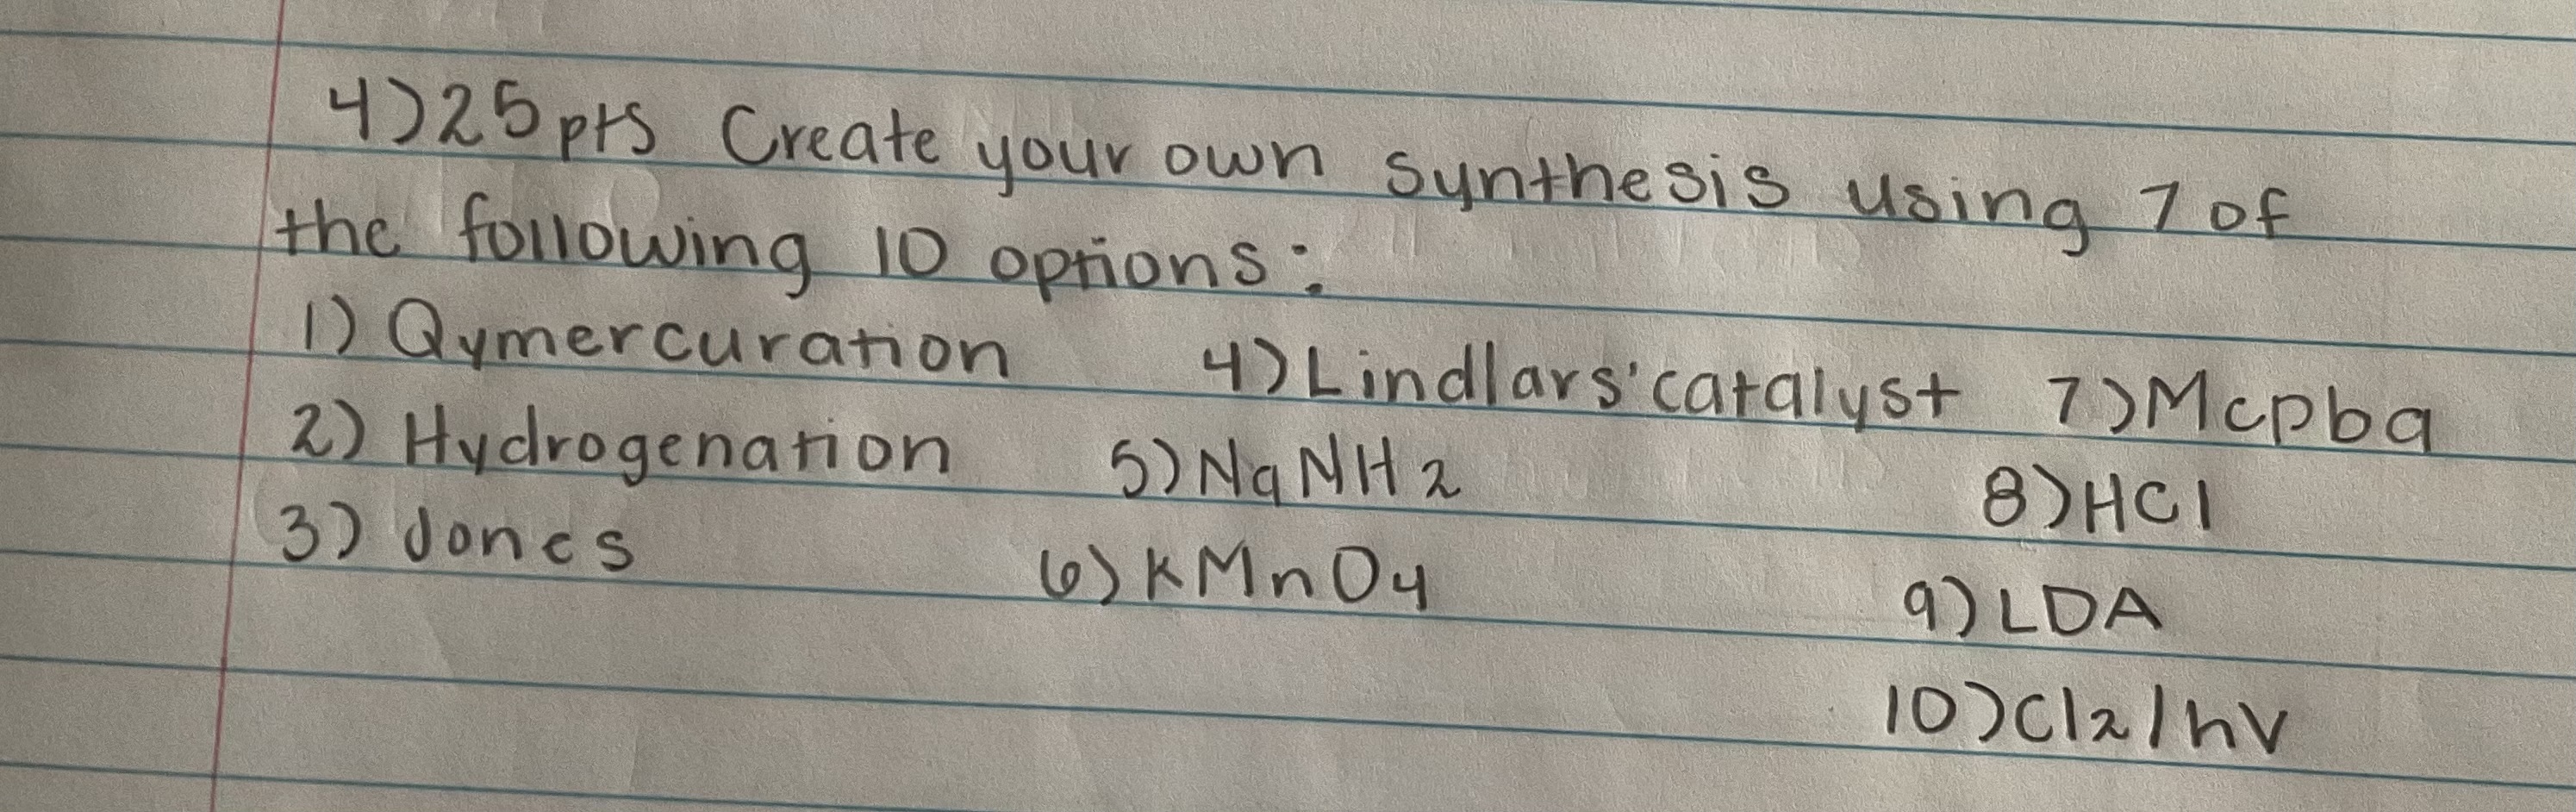 4) 25 pts Create your own synthesis using 7 of
the following 10 options:
1) Oymercuration 4) Lindlars' catalyst 7) Mcpba
2) Hydrogenation 5) NaNH2 8) HCl
3) Jones 6) KMnO4 9) LDA
10) Cl2/hv